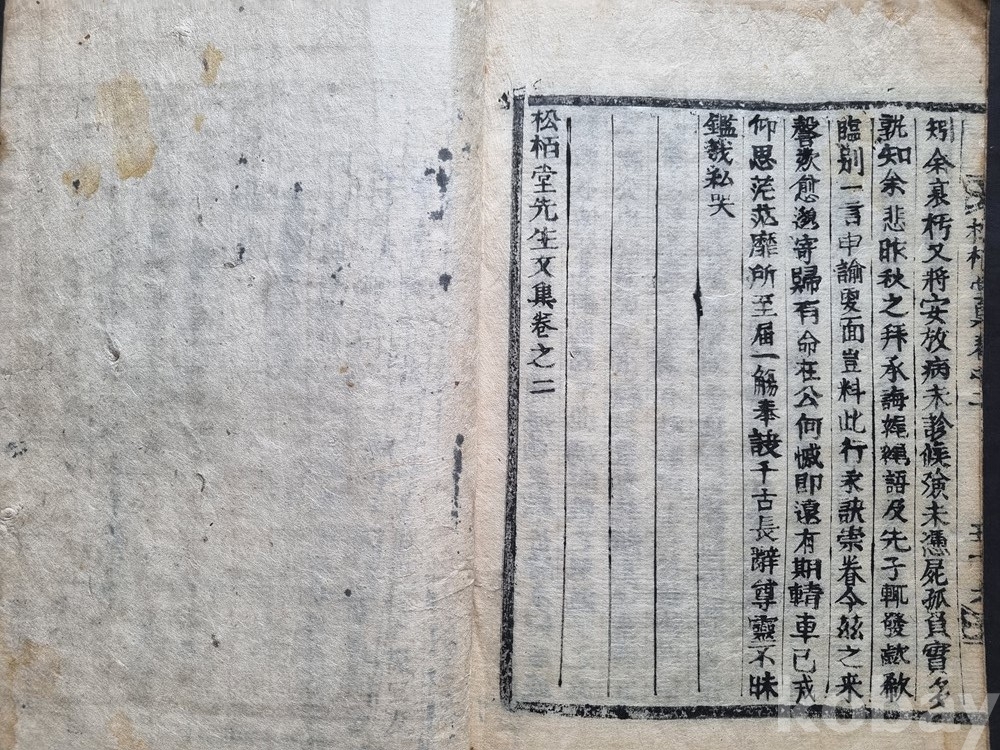 矧余衰朽又將安放病未診候殮未憑屍孤負實多
訊知余悲昨秋之拜承誨娓娓語及先子輒發歔欷
臨別一言申諭更面豈料此行永訣崇眷今玆之來
聲欬愈漠寄歸有命在公何憾即遠有期輤車已戒
仰思茫茫靡所至届一觴奉訣千古長辭尊靈不昧
鑑我私哭
松栢堂先生文集卷之二
kobay